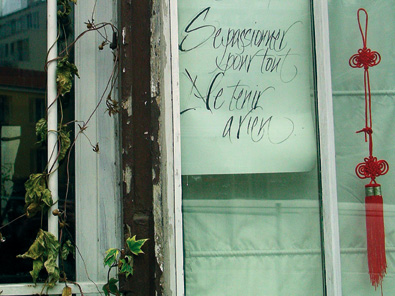 Se passionner
pour tout
Ne tenir
à rien